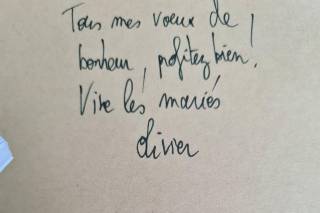 Tous mes voeux de
bonheur, profitez bien !
Vive les mariés
Olivier